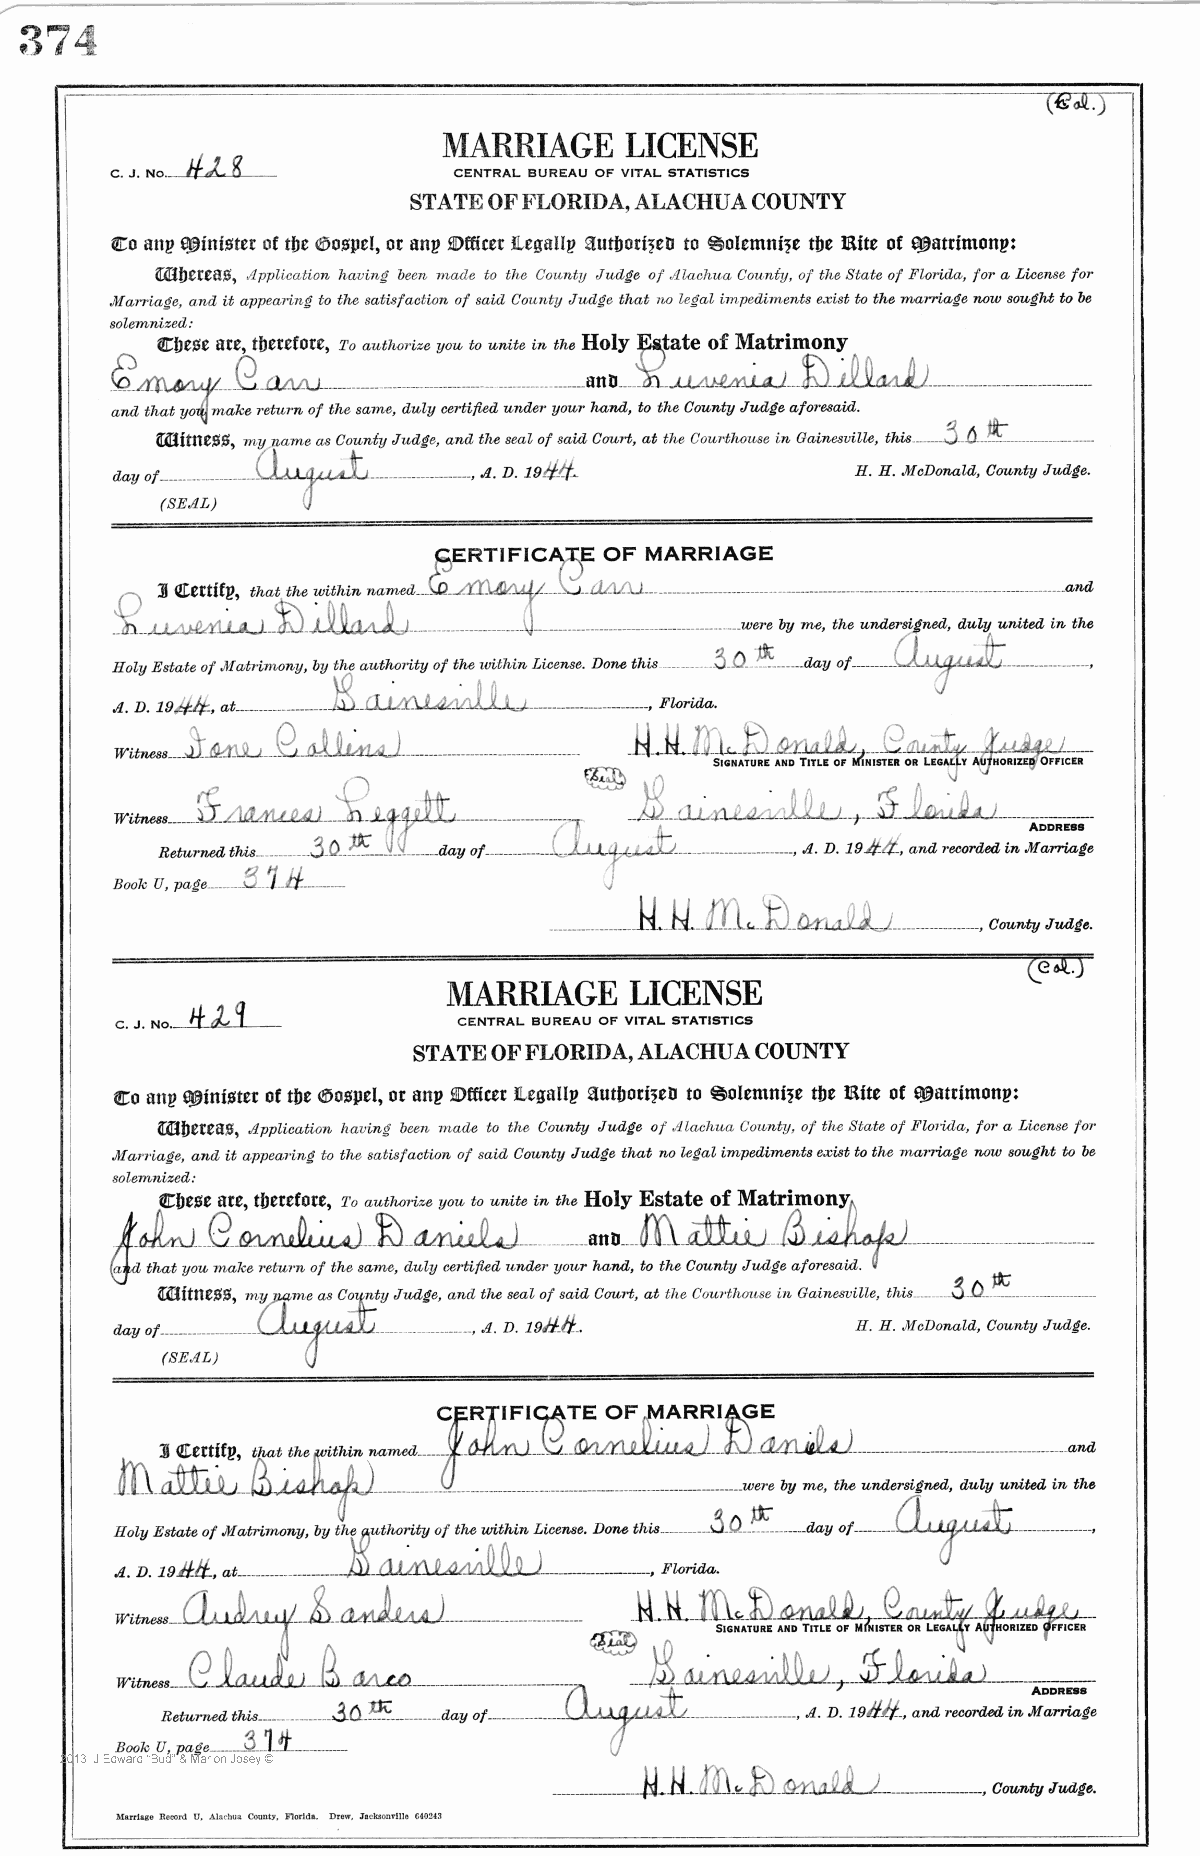 374
(Col.)
MARRIAGE LICENSE
C. J. No. 428
CENTRAL BUREAU OF VITAL STATISTICS
STATE OF FLORIDA, ALACHUA COUNTY
To any Minister of the Gospel, or any Officer Legally Authorized to Solemnize the Rite of Matrimony:
Whereas, Application having been made to the County Judge of Alachua County, of the State of Florida, for a License for
Marriage, and it appearing to the satisfaction of said County Judge that no legal impediments exist to the marriage now sought to be
solemnized:
These are, therefore, To authorize you to unite in the Holy Estate of Matrimony
Emory Carr and Luvenia Dillard
and that you make return of the same, duly certified under your hand, to the County Judge aforesaid.
Witness, my name as County Judge, and the seal of said Court, at the Courthouse in Gainesville, this 30th
day of August, A. D. 1944. H. H. McDonald, County Judge.
(SEAL)
CERTIFICATE OF MARRIAGE
I Certify, that the within named Emory Carr and
Luvenia Dillard were by me, the undersigned, duly united in the
Holy Estate of Matrimony, by the authority of the within License. Done this 30th day of August,
A. D. 1944, at Gainesville, Florida.
Witness Ione Collins H. H. McDonald, County Judge
SIGNATURE AND TITLE OF MINISTER OR LEGALLY AUTHORIZED OFFICER
Seal
Witness Frances Leggett Gainesville, Florida
ADDRESS
Returned this 30th day of August, A. D. 1944, and recorded in Marriage
Book U, page 374
H. H. McDonald, County Judge.
(Col.)
MARRIAGE LICENSE
C. J. No. 429
CENTRAL BUREAU OF VITAL STATISTICS
STATE OF FLORIDA, ALACHUA COUNTY
To any Minister of the Gospel, or any Officer Legally Authorized to Solemnize the Rite of Matrimony:
Whereas, Application having been made to the County Judge of Alachua County, of the State of Florida, for a License for
Marriage, and it appearing to the satisfaction of said County Judge that no legal impediments exist to the marriage now sought to be
solemnized:
These are, therefore, To authorize you to unite in the Holy Estate of Matrimony
John Cornelius Daniels and Mattie Bishop
and that you make return of the same, duly certified under your hand, to the County Judge aforesaid.
Witness, my name as County Judge, and the seal of said Court, at the Courthouse in Gainesville, this 30th
day of August, A. D. 1944. H. H. McDonald, County Judge.
(SEAL)
CERTIFICATE OF MARRIAGE
I Certify, that the within named John Cornelius Daniels and
Mattie Bishop were by me, the undersigned, duly united in the
Holy Estate of Matrimony, by the authority of the within License. Done this 30th day of August,
A. D. 1944, at Gainesville, Florida.
Witness Audrey Sanders H. H. McDonald, County Judge
SIGNATURE AND TITLE OF MINISTER OR LEGALLY AUTHORIZED OFFICER
Seal
Witness Claude Barco Gainesville, Florida
ADDRESS
Returned this 30th day of August, A. D. 1944, and recorded in Marriage
Book U, page 374
2013 J Edward "Bud" & Marion Josey ©
H. H. McDonald, County Judge.
Marriage Record U, Alachua County, Florida. Drew, Jacksonville 640243